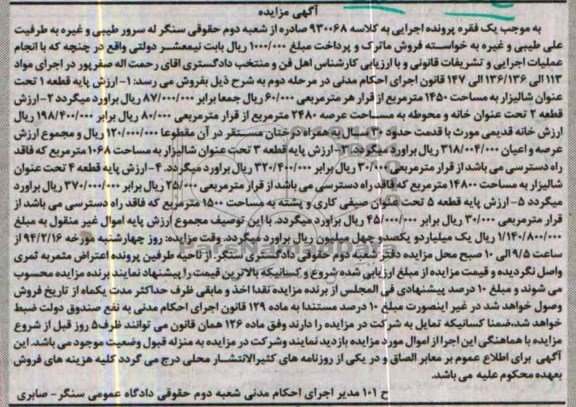 آگهی مزایده
به موجب یک فقره پرونده اجرایی به کلاسه ۹۳۰۰۶۸ صادره از شعبه دوم حقوقی سنگر له سرور طیبی و غیره به طرفیت
علی طیبی و غیره به خواسته فروش ماترک و پرداخت مبلغ ۱/۰۰۰/۰۰۰ ریال بابت نیمعشر دولتی واقع در چنچه که با انجام
عملیات اجرایی و تشریفات قانونی و با ارزیابی کارشناس اهل فن و منتخب دادگستری اقای رحمت اله صفرپور در اجرای مواد
۱۱۳ الی ۱۳۶/۱۳۶ الی ۱۴۷ قانون اجرای احکام مدنی در مرحله دوم به شرح ذیل بفروش می رسد: ۱- ارزش پایه قطعه ۱ تحت
عنوان شالیزار به مساحت ۱۴۵۰ مترمربع از قرار هر مترمربعی ۶۰/۰۰۰ ریال جمعا برابر ۸۷/۰۰۰/۰۰۰ ریال براورد میگردد ۲- ارزش
قطعه ۲ تحت عنوان خانه و محوطه به مساحت عرصه ۲۴۸۰ مترمربع از قرار مترمربعی ۸۰/۰۰۰ ریال برابر ۱۹۸/۴۰۰/۰۰۰ ریال
ارزش خانه قدیمی مورث با قدمت حدود ۳۰ سال به همراه درختان مستقر در آن مقطوعا ۱۲۰/۰۰۰/۰۰۰ ریال و مجموع ارزش
عرصه و اعیان ۳۱۸/۰۰۴/۰۰۰ ریال براورد میگردد. ۳- ارزش پایه قطعه ۳ تحت عنوان شالیزار به مساحت ۱۰۶۸ مترمربع که فاقد
راه دسترسی می باشد از قرار مترمربعی ۳۰/۰۰۰ ریال برابر ۳۲۰/۴۰۰/۰۰۰ ریال براورد میگردد. ۴- ارزش پایه قطعه ۴ تحت عنوان
شالیزار به مساحت ۱۴۸۰۰ مترمربع که فاقد راه دسترسی می باشد از قرار مترمربعی ۲۵/۰۰۰ ریال برابر ۳۷۰/۰۰۰/۰۰۰ ریال براورد
میگردد ۵- ارزش پایه قطعه ۵ تحت عنوان صیفی کاری و پشته به مساحت ۱۵۰۰ مترمربع که فاقد راه دسترسی می باشد از
قرار مترمربعی ۳۰/۰۰۰ ریال برابر ۴۵/۰۰۰/۰۰۰ ریال براورد میگردد. با این توصیف مجموع ارزش پایه اموال غیر منقول به مبلغ
۱/۱۴۰/۸۰۰/۰۰۰ ریال یک میلیاردو یکصدو چهل میلیون ریال براورد میگردد. وقت مزایده: روز چهارشنبه مورخه ۹۴/۲/۱۶ از
ساعت ۹/۵ الی ۱۰ صبح محل مزایده دفتر شعبه دوم حقوقی دادگستری سنگر. از ناحیه طرفین پرونده اعتراض مثمربه ثمری
واصل نگردیده و قیمت مزایده از مبلغ ارزیابی شده شروع و کسانیکه بالاترین قیمت را پیشنهاد نمایند برنده مزایده محسوب
می شوند و مبلغ ۱۰ درصد پیشنهادی فی المجلس از برنده مزایده نقدا اخذ و مابقی ظرف حداکثر مدت یکماه از تاریخ فروش
وصول خواهد شد در غیر اینصورت مبلغ ۱۰ درصد مستندا به ماده ۱۲۹ قانون اجرای احکام مدنی به نفع صندوق دولت ضبط
خواهد شد، ضمنا کسانیکه تمایل به شرکت در مزایده را دارند وفق ماده ۱۲۶ همان قانون می توانند ظرف ۵ روز قبل از شروع
مزایده با هماهنگی این اجرا از اموال مورد مزایده بازدید نمایند وشرکت در مزایده به منزله قبول وضعیت موجود می باشد. این
آگهی برای اطلاع عموم بر معابر الصاق و در یکی از روزنامه های کثیرالانتشار محلی درج می گردد کلیه هزینه های فروش
بعهده محکوم علیه می باشد.
ح ۱۰۱ مدیر اجرای احکام مدنی شعبه دوم حقوقی دادگاه عمومی سنگر- صابری